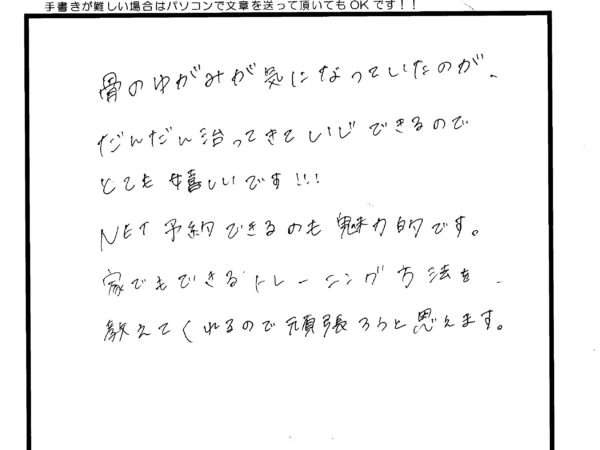 手書きが難しい場合はパソコンで文章を送って頂いてもOKです！！
骨のゆがみが気になっていたのが、
だんだん治ってきていじできるので
とても嬉しいです!!!
NET予約できるのも魅力的です。
家でもできるトレーニング方法を
教えてくれるので頑張ろうと思えます。